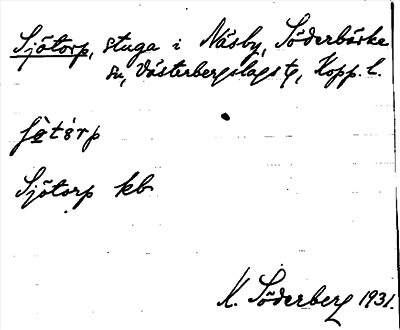 Sjötorp, stuga i Näsby, Söderbärke
sn, Västerbergslags tg, Kopp. l.
Sjötorp kb
K. Söderberg 1931.